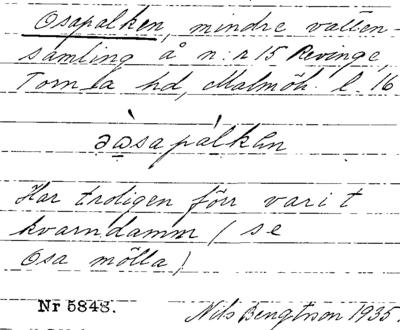 Osapalken, mindre vatten-
samling å n:r 15 Revinge,
Torna hd, Malmöh. l. 16
Har troligen förr varit
kvarndamm (se
Osa mölla)
Nr 5848. Nils Bengtsson 1935.